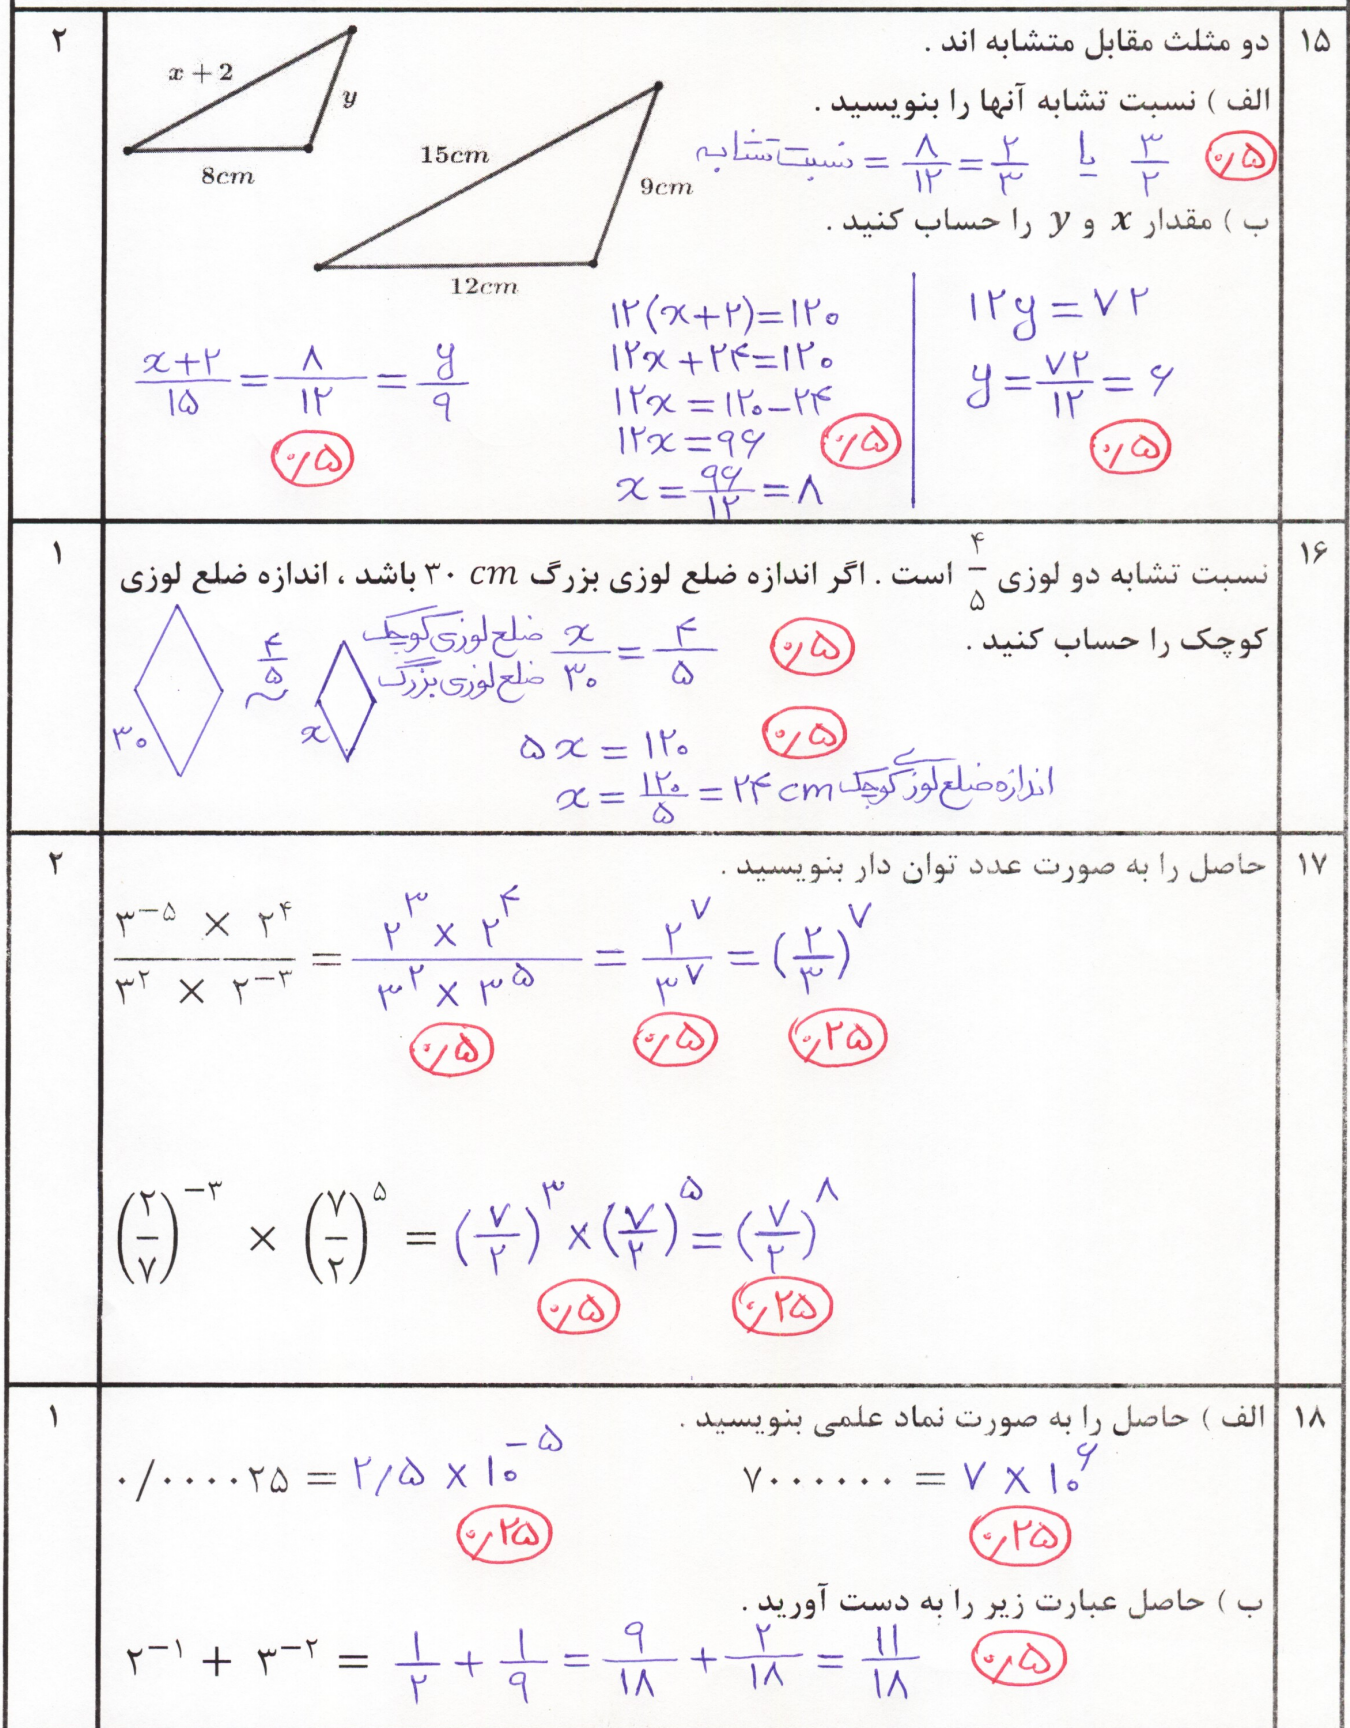 ۱۵ دو مثلث مقابل متشابه اند . ۲
الف ) نسبت تشابه آنها را بنویسید .
نسبت تشابه = ۸/۱۲ = ۲/۳ یا ۳/۲ ۰/۵
x + 2
y
8cm
15cm
9cm
12cm
ب ) مقدار x و y را حساب کنید .
(x+۲)/۱۵ = ۸/۱۲ = y/۹
۰/۵
۱۲(x+۲)=۱۲۰
۱۲x+۲۴=۱۲۰
۱۲x=۱۲۰-۲۴
۱۲x=۹۶ ۰/۵
x=۹۶/۱۲=۸
۱۲y=۷۲
y=۷۲/۱۲=۶
۰/۵
۱۶ نسبت تشابه دو لوزی ۴/۵ است . اگر اندازه ضلع لوزی بزرگ ۳۰ cm باشد ، اندازه ضلع لوزی ۱
کوچک را حساب کنید .
۳۰ ۴/۵ ~ x
ضلع لوزی کوچک x/۳۰ = ۴/۵ ۰/۵
ضلع لوزی بزرگ
۵x = ۱۲۰ ۰/۵
x = ۱۲۰/۵ = ۲۴ cm اندازه ضلع لوزی کوچک
۱۷ حاصل را به صورت عدد توان دار بنویسید . ۲
(۳^-۵ × ۲^۴)/(۳^۲ × ۲^-۳) = (۲^۳ × ۲^۴)/(۳^۲ × ۳^۵) = ۲^۷/۳^۷ = (۲/۳)^۷
۰/۵ ۰/۵ ۰/۲۵
(۲/۷)^-۳ × (۷/۲)^۵ = (۷/۲)^۳ × (۷/۲)^۵ = (۷/۲)^۸
۰/۵ ۰/۲۵
۱۸ الف ) حاصل را به صورت نماد علمی بنویسید . ۱
۰/۰۰۰۰۲۵ = ۲/۵ × ۱۰^-۵ ۷۰۰۰۰۰۰ = ۷ × ۱۰^۶
۰/۲۵ ۰/۲۵
ب ) حاصل عبارت زیر را به دست آورید .
۲^-۱ + ۳^-۲ = ۱/۲ + ۱/۹ = ۹/۱۸ + ۲/۱۸ = ۱۱/۱۸ ۰/۵